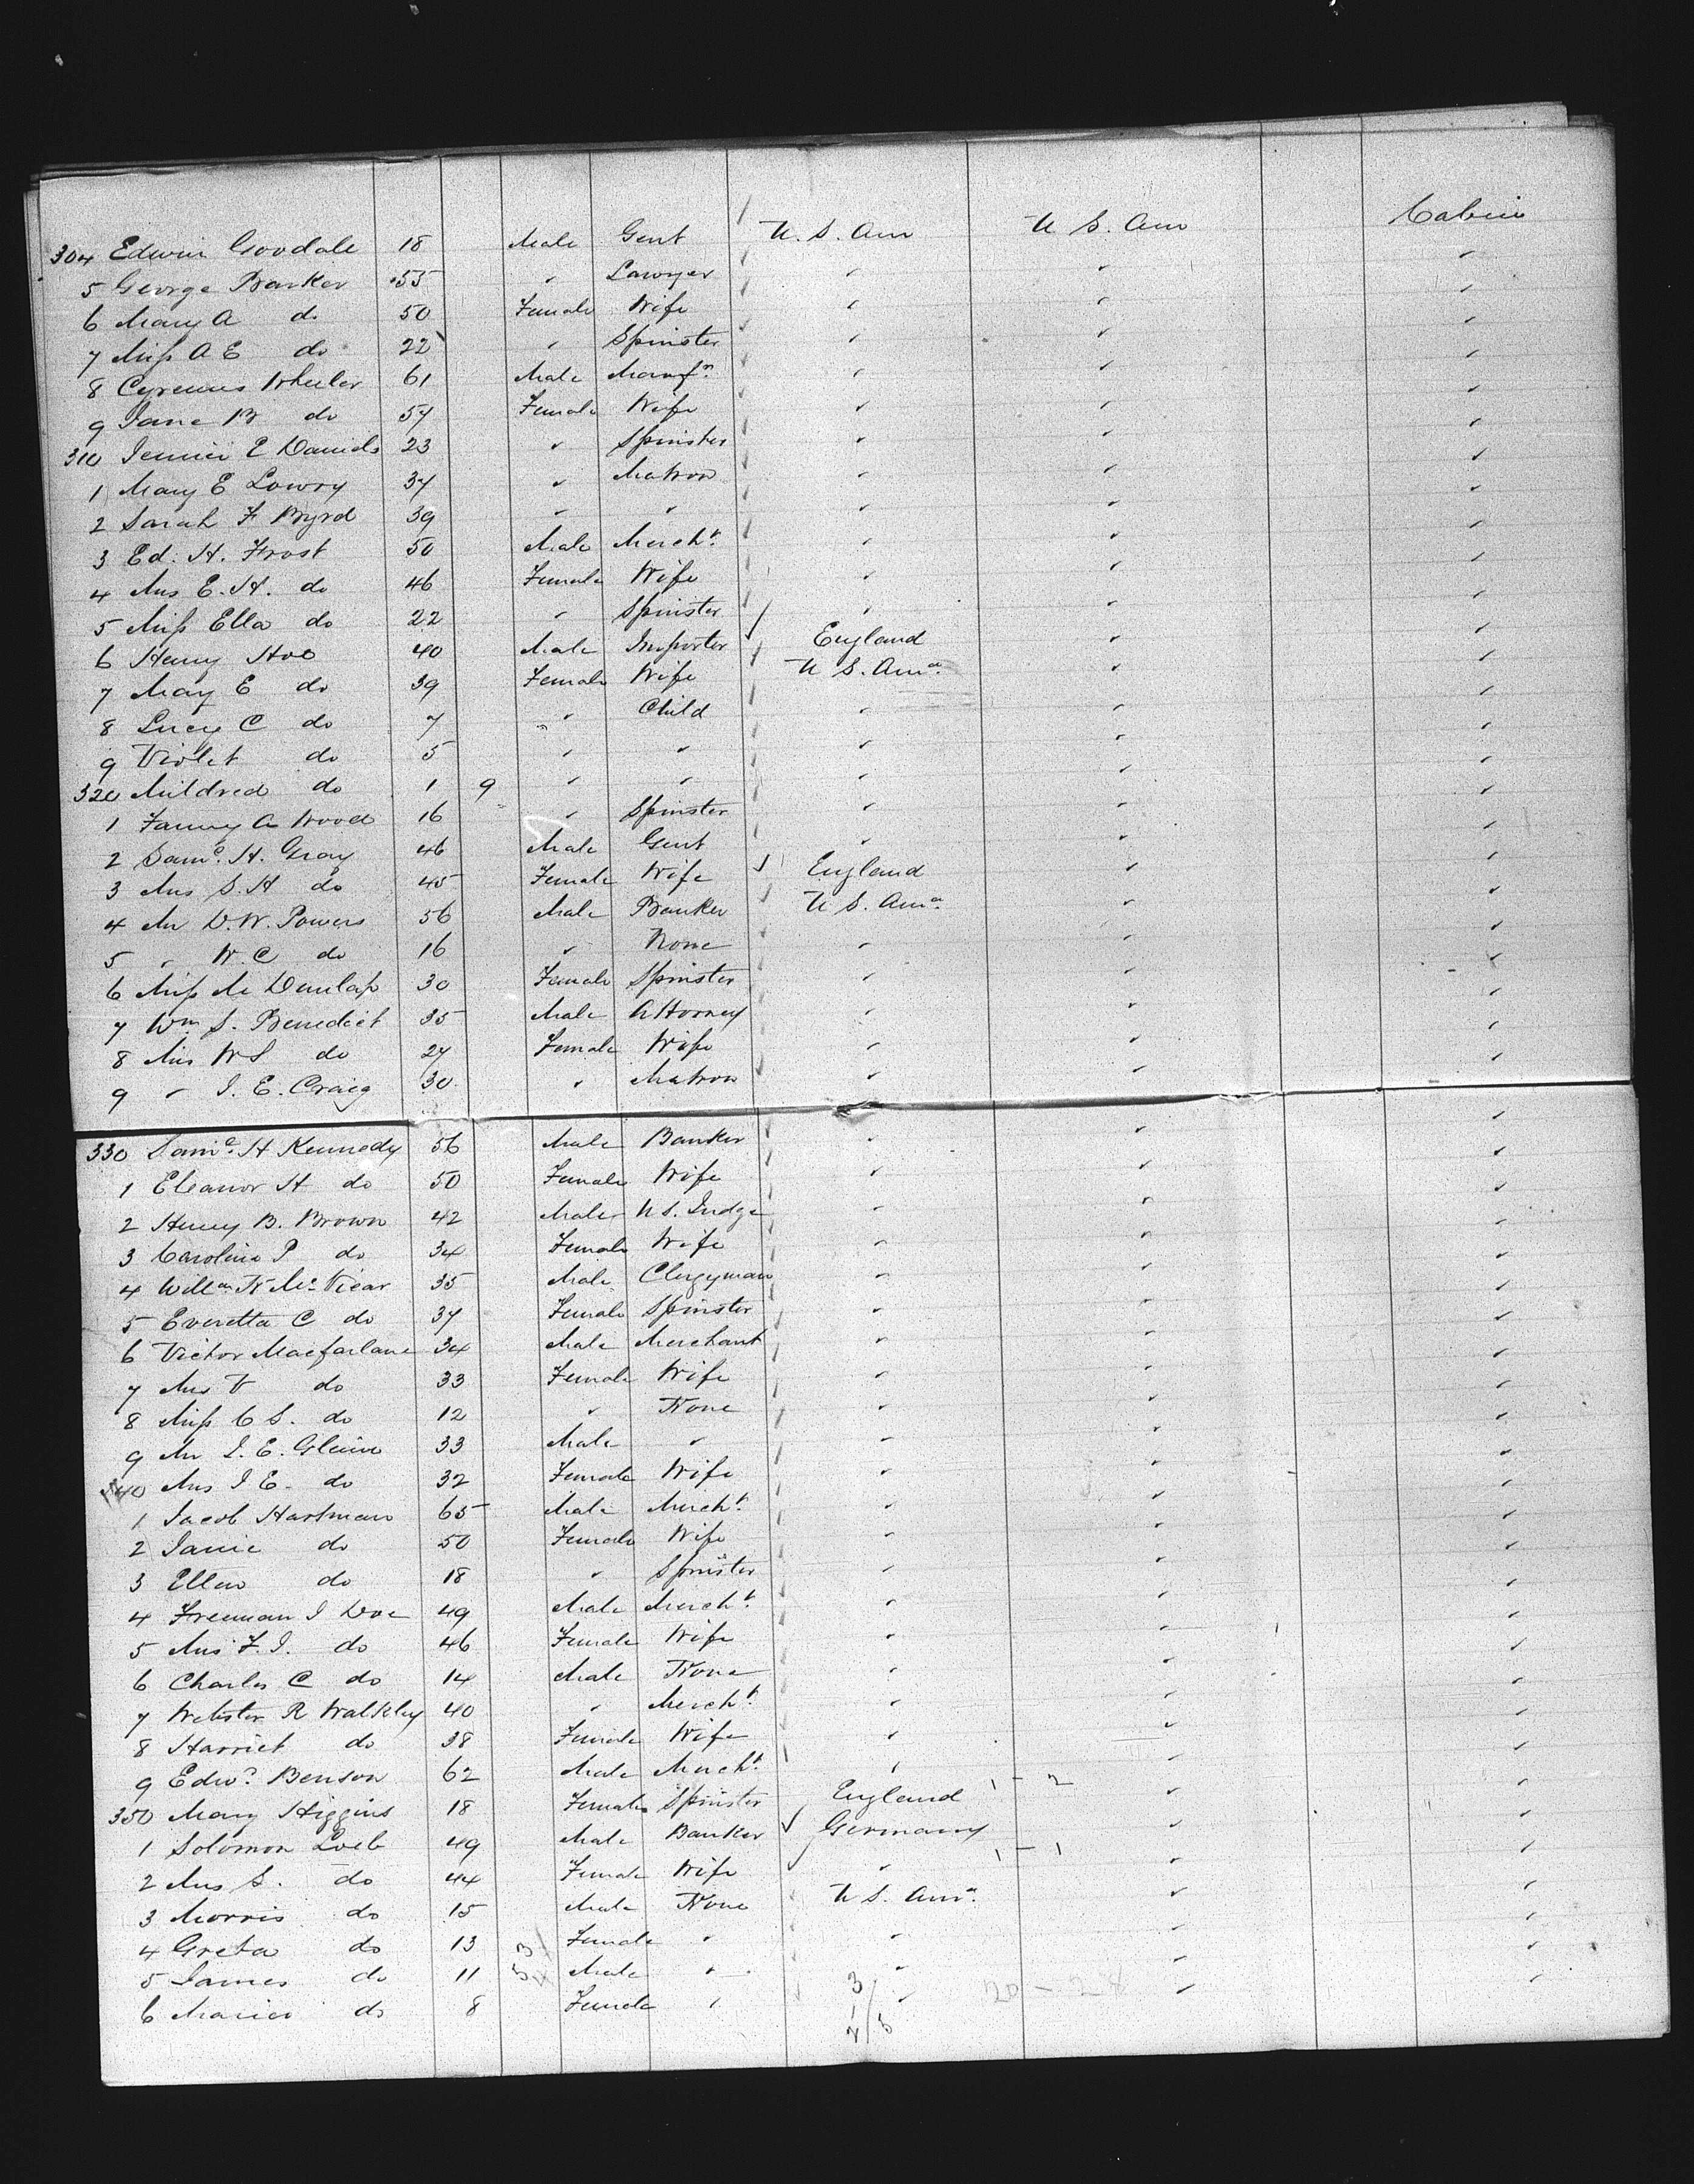 304 Edwin Goodale 18 Male Gent U. S. Am U S. Am Cabin
5 George Barker 55 " Lawyer " " "
6 Mary A do 50 Female Wife " " "
7 Miss A E do 22 " Spinster " " "
8 Cyrenus Wheeler 61 Male Manfr " " "
9 Jane B do 57 Female Wife " " "
310 Jennie E Daniels 23 " Spinster " " "
1 Mary E Lowry 37 " Matron " " "
2 Sarah F Byrd 39 " " " " "
3 Ed. H. Frost 50 Male Mercht. " " "
4 Mrs E. H. do 46 Female Wife " " "
5 Miss Ella do 22 " Spinster " " "
6 Henry Hoe 40 Male Importer England " "
7 May E do 39 Female Wife U S. Ama. " "
8 Lucy C do 7 " Child " " "
9 Violet do 5 " " " " "
320 Mildred do 1 9 " " " " "
1 Fanny A Wood 16 " Spinster " " "
2 Saml. H. Gray 46 Male Gent " " "
3 Mrs S. H do 45 Female Wife England " "
4 Mr D. W. Powers 56 Male Banker U S. Ama. " "
5 " W. C do 16 " None " " "
6 Miss M Dunlap 30 Female Spinster " " "
7 Wm S. Benedict 35 Male Attorney " " "
8 Mrs W S do 27 Female Wife " " "
9 " J. E. Craig 30 " Matron " " "
330 Saml. H Kennedy 56 Male Banker " " "
1 Eleanor H do 50 Female Wife " " "
2 Henry B. Brown 42 Male U S. Judge " " "
3 Caroline P do 34 Female Wife " " "
4 Willm. N McVicar 35 Male Clergyman " " "
5 Everetta C do 37 Female Spinster " " "
6 Victor Macfarlane 34 Male Merchant " " "
7 Mrs V do 33 Female Wife " " "
8 Miss C S. do 12 " None " " "
9 Mr J. E. 33 Male " " "
340 Mrs J E. do 32 Female Wife " " "
1 Jacob Hartman 65 Male Mercht. " " "
2 Janie do 50 Female Wife " " "
3 Ellen do 18 " Spinster " " "
4 Freeman J Doe 49 Male Mercht. " " "
5 Mrs F. J. do 46 Female Wife " " "
6 Charles C do 14 Male None " " "
7 Webster R Walkley 40 " Mercht. " " "
8 Harriet do 38 Female Wife " " "
9 Edwd. Benson 62 Male Mercht. " " "
350 Mary Higgins 18 Female Spinster England 1 - 2 " "
1 Solomon Loeb 49 Male Banker Germany " "
2 Mrs S. do 44 Female Wife " 1 - 1 " "
3 Morris do 15 Male None U S. Ama. " "
4 Greta do 13 Female " " " "
5 James do 11 Male " " " "
6 do 8 Female " " 20 - 28 " "